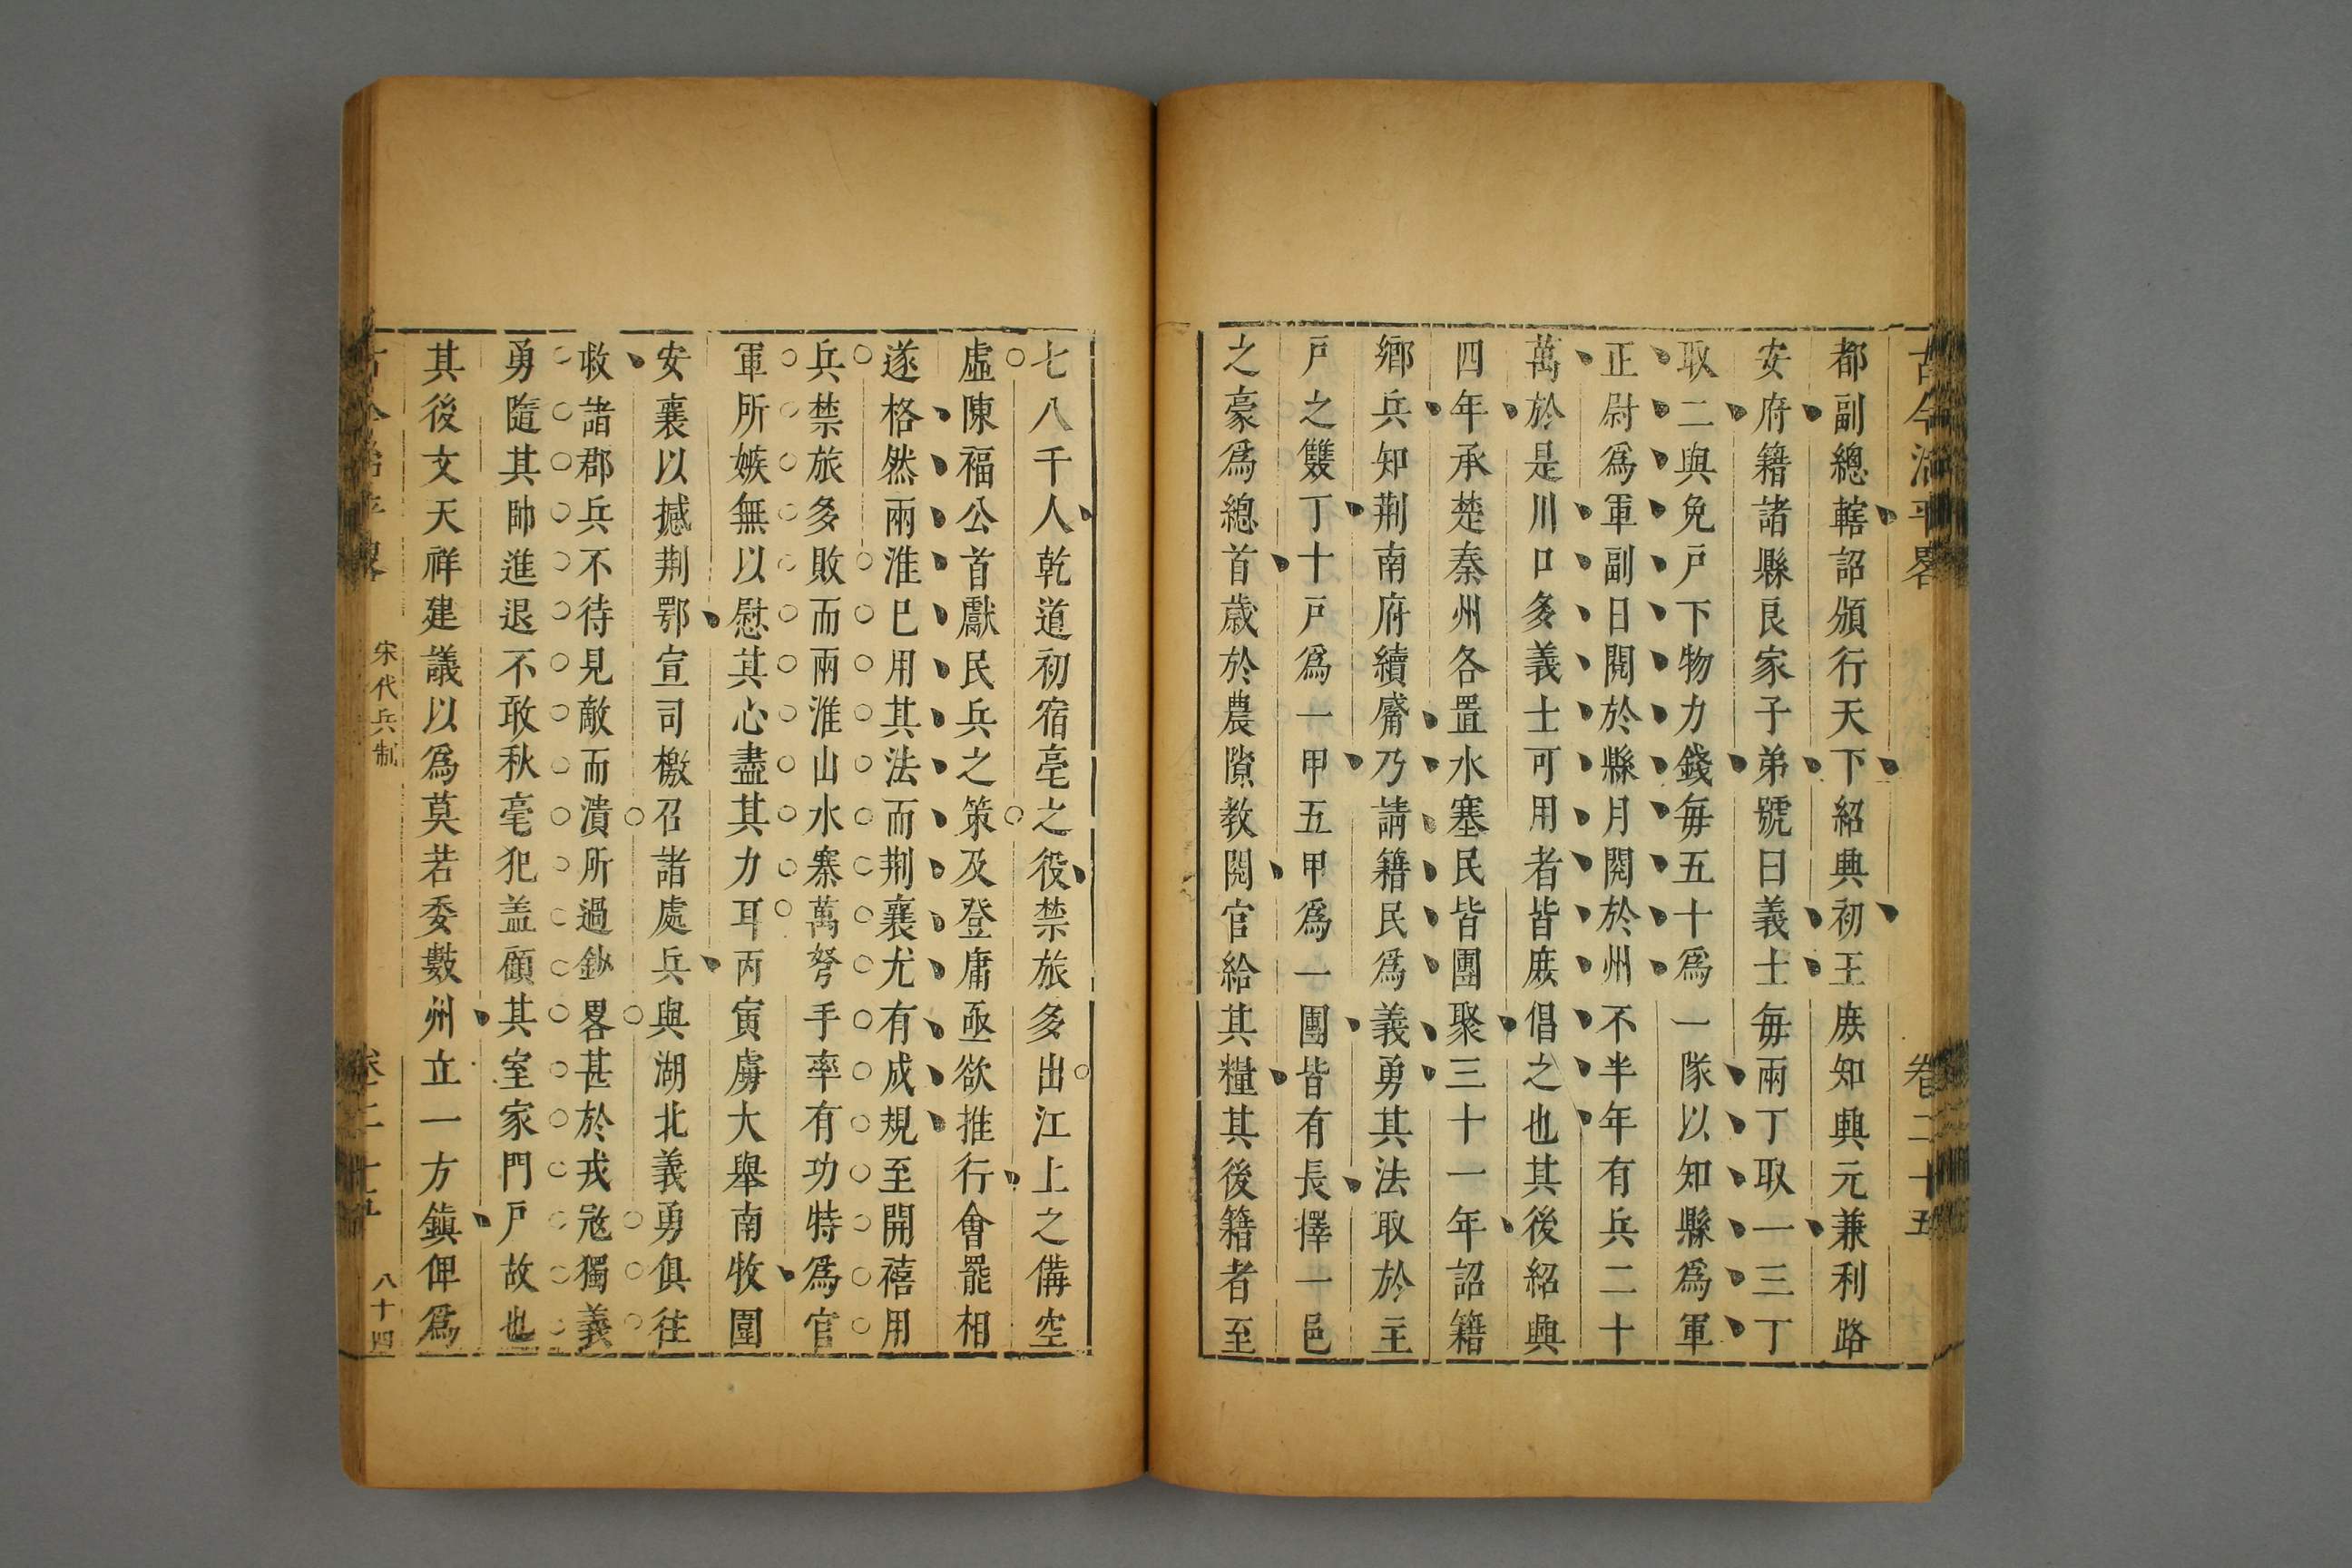 古今治平畧 卷二十五
都副總轄詔頒行天下紹興初王庻知興元兼利路
安府籍諸縣良家子弟號曰義士每兩丁取一三丁
取二與免戸下物力錢每五十爲一隊以知縣爲軍
正尉爲軍副日閱於縣月閱於州不半年有兵二十
萬於是川口多義士可用者皆庻倡之也其後紹興
四年承楚秦州各置水塞民皆團聚三十一年詔籍
鄉兵知荆南府續觱乃請籍民爲義勇其法取於主
戸之雙丁十戸爲一甲五甲爲一團皆有長擇一邑
之豪爲總首歲於農隙教閱官給其糧其後籍者至
七八千人乾道初宿亳之役禁旅多出江上之備空
虛陳福公首獻民兵之策及登庸亟欲推行會罷相
遂格然兩淮巳用其法而荆襄尤有成規至開禧用
兵禁旅多敗而兩淮山水寨萬弩手率有功特爲官
軍所嫉無以慰其心盡其力耳丙寅虜大舉南牧圍
安襄以撼荆鄂宣司檄召諸處兵與湖北義勇俱往
救諸郡兵不待見敵而潰所過鈔畧甚於戎冦獨義
勇隨其帥進退不敢秋毫犯盖顧其室家門戸故也
其後文天祥建議以爲莫若委數州立一方鎮俾爲
古今治平畧 宋代兵制 卷二十五 八十四